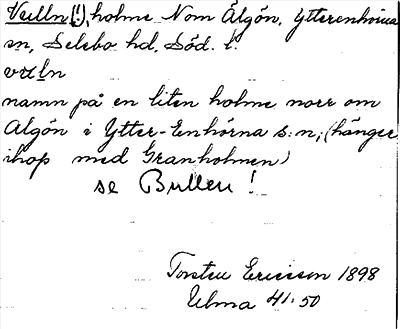 Vulln (!), holme Nom Älgön, Ytterenhörna
sn, Selebo hd, Söd. l.
vulln
namn på en liten holme norr om
Algön i Ytter-Enhörna s:n, (hänger
ihop med Granholmen)
se Bullen!
Torsten Ericsson 1898
Ulma 41:50